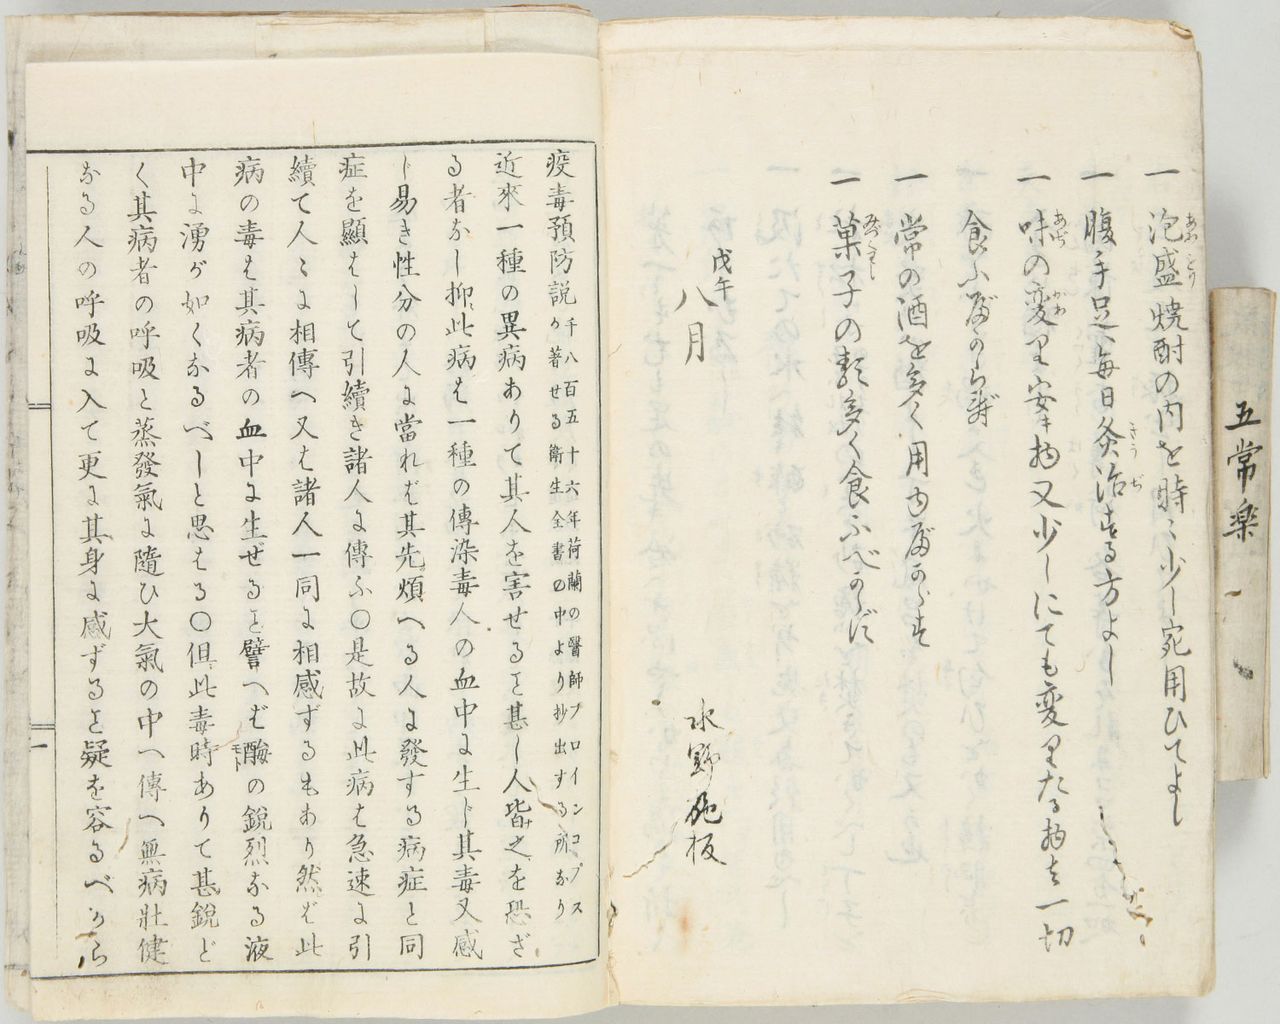 一 泡盛焼酎の内を時々少し宛用ひてよし
一 腹手足へ毎日灸治する方よし
一 味の変り安き物又少しにても変りたる物を一切
食ふべからず
一 常の酒を多く用ゆべからず
一 菓子の類多く食ふべからず
戊午
八月
水野施板
五常楽
疫毒預防説 千八百五十六年荷蘭の醫師ブロインコプス
が著せる衛生全書の中より抄出する所なり
近來一種の異病ありて其人を害せるヿ甚し人皆之を恐ざ
る者なし抑此病は一種の傳染毒人の血中に生じ其毒又感
じ易き性分の人に當れば其先煩へる人に發する病症と同
症を顯はして引續き諸人に傳ふ〇是故に此病は急速に引
續て人々に相傳へ又は諸人一同に相感ずるもあり然ば此
病の毒は其病者の血中に生ぜるヿ譬へば酶の鋭烈なる液
モト
中に湧が如くなるべしと思はる〇但此毒時ありて甚鋭ど
く其病者の呼吸と蒸發氣に隨ひ大氣の中へ傳へ無病壯健
なる人の呼吸に入て更に其身に感ずるヿ疑を容るべから